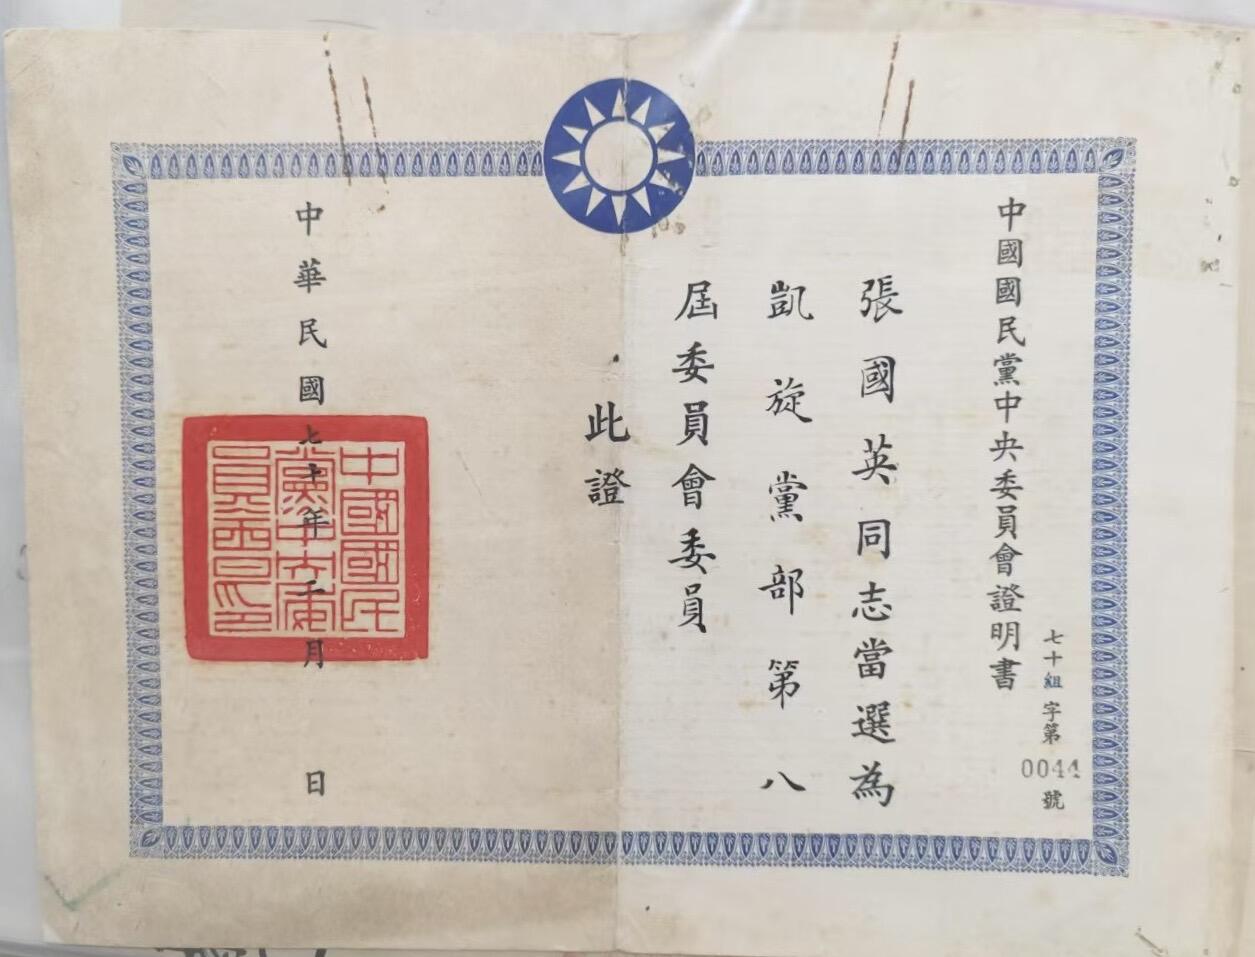 中國國民黨中央委員會證明書
七十組字第0044號
張國英同志當選為
凱旋黨部第八
屆委員會委員
此證
中華民國七十年 月 日
中國國民
黨中央委
員會之印